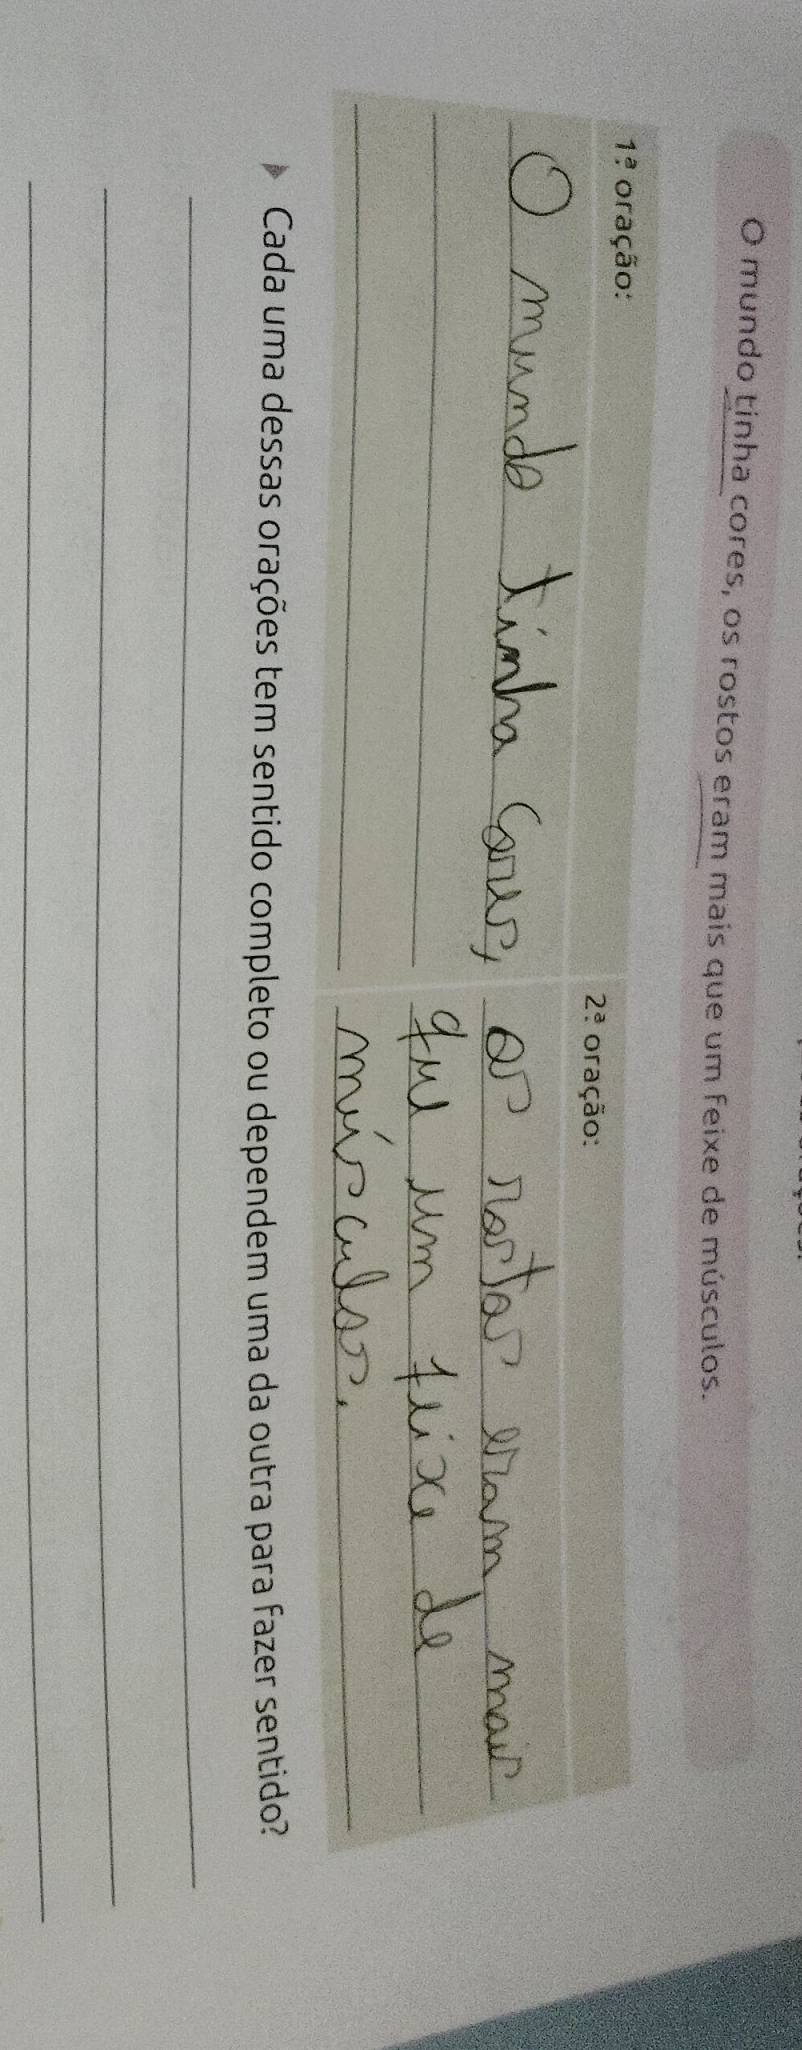 O mundo tinha cores, os rostos eram mais que um feixe de músculos.
1ª oração:
O mundo tinha cores,
2ª oração:
os rostos eram mais
que um feixe de
músculos.
Cada uma dessas orações tem sentido completo ou dependem uma da outra para fazer sentido?